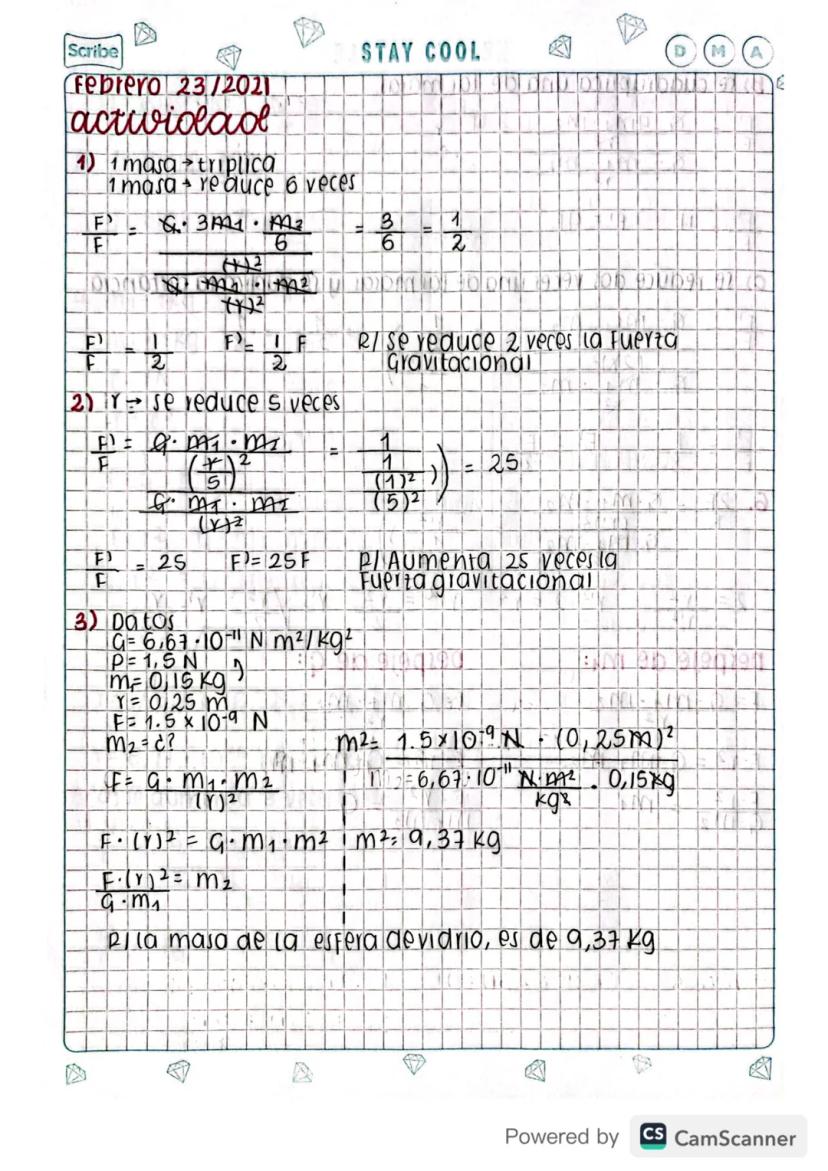 Scribe
STAY COOL
D M A
Febrero 23/2021
actividad
1) 1 masa → triplica
1 masa → reduce 6 veces
F'/F = G · 3m1 · m2/6 / (r)² / G · m1 · m2 / (r)² = 3/6 = 1/2
F'/F = 1/2 F' = 1/2 F R/ Se reduce 2 veces la Fuerza
Gravitacional
2) r → se reduce 5 veces
F'/F = G · m1 · m2 / (r/5)² / G · m1 · m2 / (r)² = 1 / 1 / (1)² / (5)² = 25
F'/F = 25 F' = 25F R/ Aumenta 25 veces la
Fuerza gravitacional
3) Datos
G = 6,67 · 10⁻¹¹ N m²/kg²
P = 1,5 N
m1 = 0,15 kg
r = 0,25 m
F = 1.5 x 10⁻⁹ N
m2 = ¿?
m² = 1.5 x 10⁻⁹ N · (0,25m)² / = 6,67 · 10⁻¹¹ N·m²/kg² · 0,15kg
F = G · m1 · m2 / (r)²
F · (r)² = G · m1 · m² m² = 9,37 kg
F · (r)² / G · m1 = m2
R/ la masa de la esfera de vidrio, es de 9,37 kg
Powered by CS CamScanner